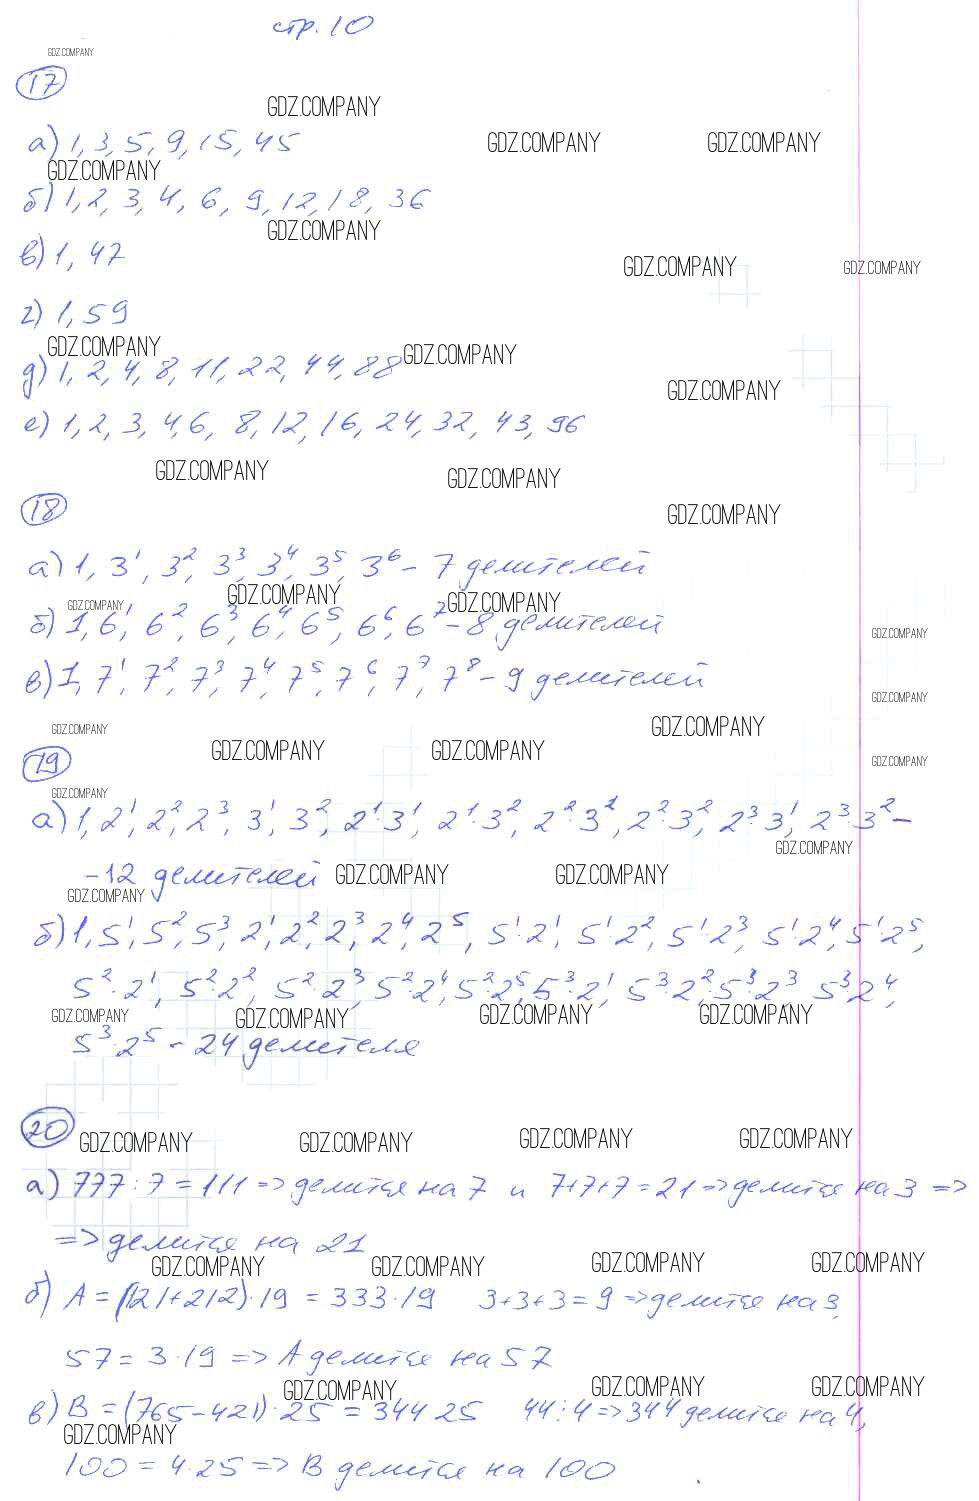 стр. 10
GDZ.COMPANY
17
GDZ.COMPANY
а) 1, 3, 5, 9, 15, 45
GDZ.COMPANY GDZ.COMPANY
GDZ.COMPANY
б) 1, 2, 3, 4, 6, 9, 12, 18, 36
GDZ.COMPANY
в) 1, 47
GDZ.COMPANY GDZ.COMPANY
г) 1, 59
GDZ.COMPANY GDZ.COMPANY
д) 1, 2, 4, 8, 11, 22, 44, 88
GDZ.COMPANY
е) 1, 2, 3, 4, 6, 8, 12, 16, 24, 32, 43, 96
GDZ.COMPANY GDZ.COMPANY
18
GDZ.COMPANY
а) 1, 3¹, 3², 3³, 3⁴, 3⁵, 3⁶ – 7 делителей
GDZ.COMPANY GDZ.COMPANY GDZ.COMPANY
б) 1, 6¹, 6², 6³, 6⁴, 6⁵, 6⁶, 6⁷ – 8 делителей
GDZ.COMPANY
в) 1, 7¹, 7², 7³, 7⁴, 7⁵, 7⁶, 7⁷, 7⁸ – 9 делителей
GDZ.COMPANY
GDZ.COMPANY GDZ.COMPANY GDZ.COMPANY GDZ.COMPANY
19
GDZ.COMPANY
GDZ.COMPANY
а) 1, 2¹, 2², 2³, 3¹, 3², 2¹·3¹, 2¹·3², 2²·3¹, 2²·3², 2³·3¹, 2³·3² –
GDZ.COMPANY
– 12 делителей GDZ.COMPANY GDZ.COMPANY
GDZ.COMPANY
б) 1, 5¹, 5², 5³, 2¹, 2², 2³, 2⁴, 2⁵, 5¹·2¹, 5¹·2², 5¹·2³, 5¹·2⁴, 5¹·2⁵,
5²·2¹, 5²·2², 5²·2³, 5²·2⁴, 5²·2⁵, 5³·2¹, 5³·2², 5³·2³, 5³·2⁴,
GDZ.COMPANY GDZ.COMPANY GDZ.COMPANY GDZ.COMPANY
5³·2⁵ – 24 делителя
20
GDZ.COMPANY GDZ.COMPANY GDZ.COMPANY GDZ.COMPANY
а) 777 : 7 = 111 => делится на 7 и 7+7+7 = 21 => делится на 3 =>
=> делится на 21
GDZ.COMPANY GDZ.COMPANY GDZ.COMPANY GDZ.COMPANY
б) А = (121+212)·19 = 333·19 3+3+3 = 9 => делится на 3,
57 = 3·19 => А делится на 57
GDZ.COMPANY GDZ.COMPANY GDZ.COMPANY
в) В = (765–421)·25 = 344 25 44 : 4 => 344 делится на 4,
GDZ.COMPANY
100 = 4·25 => В делится на 100